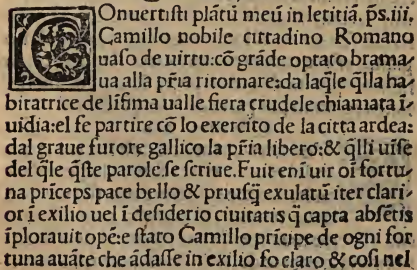 COnuertisti plātū meū in letitiā. ps.iii.
Camillo nobile cittadino Romano
uaso de uirtu: cō grāde optato brama/
ua alla p̄ria ritornare: da laq̄le q̄lla ha/
bitatrice de l'ifima ualle fiera crudele chiamata ī/
uidia: el fe partire cō lo exercito de la citta ardea:
dal graue furore gallico la p̄ria libero: & q̄lli uise
del q̄le q̄ste parole se scriue. Fuit eni uir oi fortu/
na prīceps pace bello & priusq̄ exulatū iter clari/
or ī exilio uel ī desiderio ciuitatis q̄ capta absētis
īplorauit opē: e stato Camillo prīcipe de ogni for
tuna auāte che ādasse in exilio fo claro & cosi nel